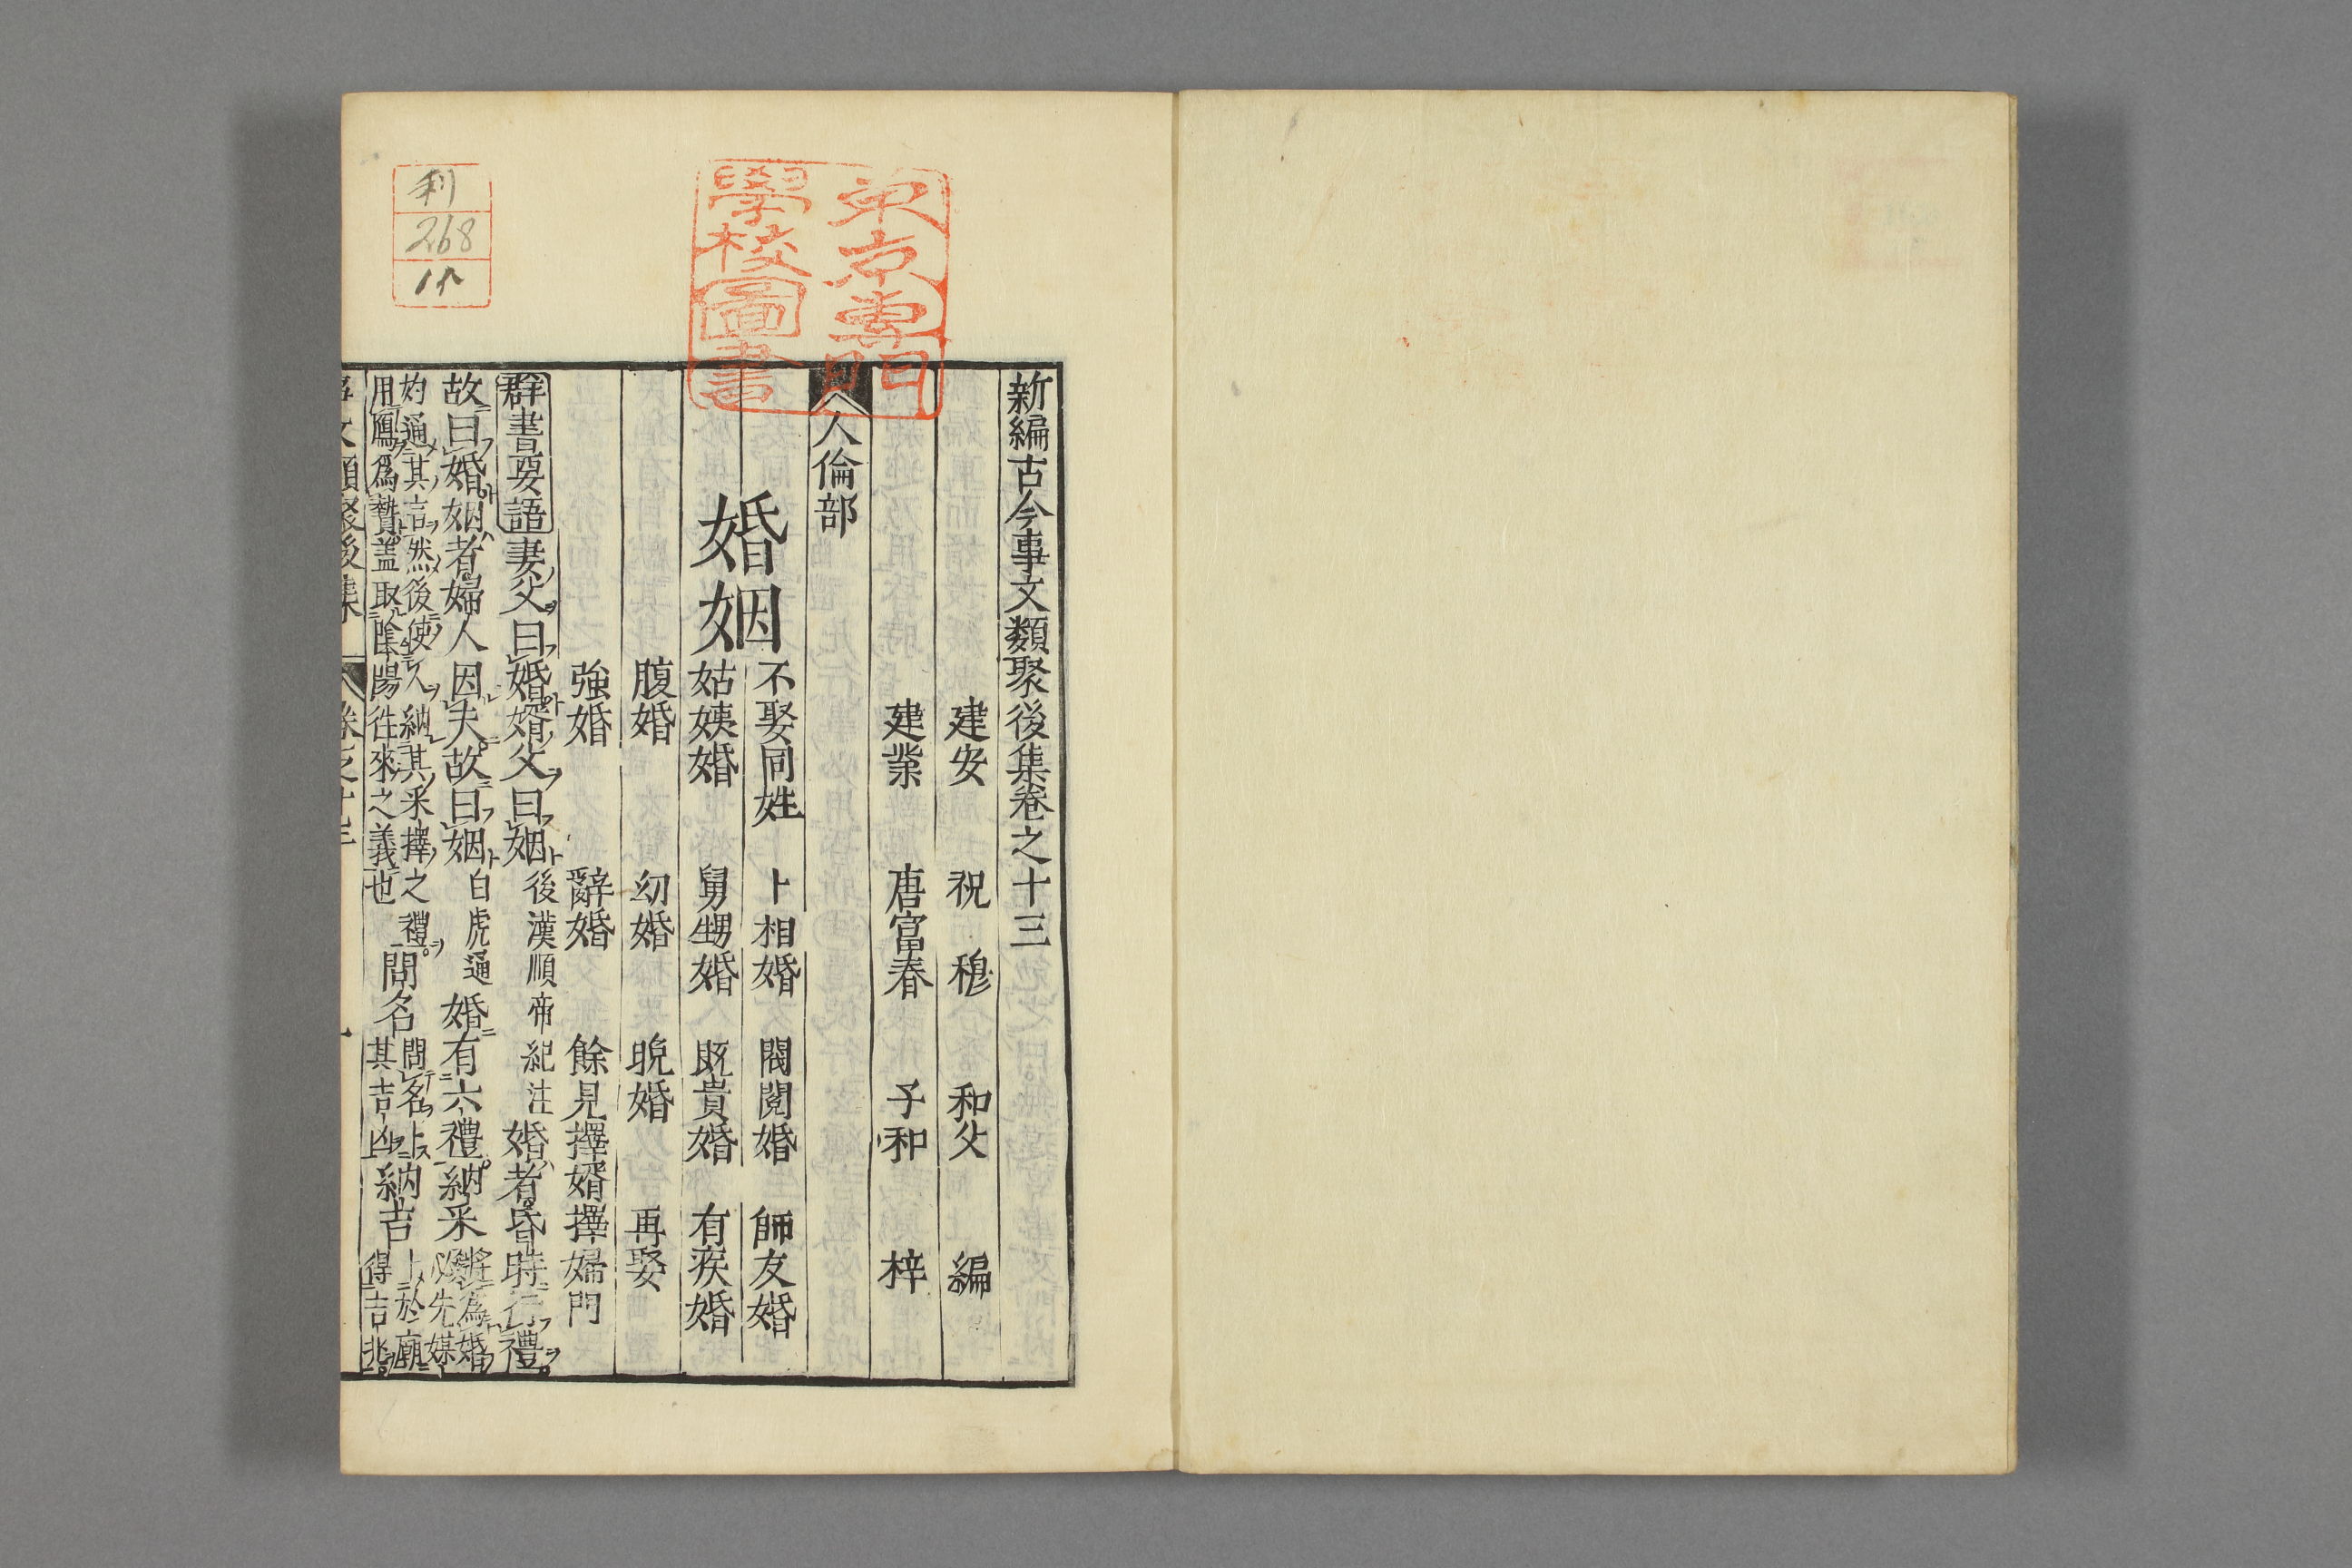 新編古今事文類聚後集卷之十三
建安　祝　穆　和父　編
建業　唐富春　子和　梓
人倫部
婚姻
不娶同姓　卜相婚　閥閱婚　師友婚
姑姨婚　舅甥婚　既貴婚　有疾婚
腹婚　幼婚　晚婚　再娶
強婚　辭婚　餘見擇婿擇婦門
群書要語　妻父曰婚婿父曰姻後漢順帝紀注婚者昏時行禮
故曰婚姻者婦人因夫故曰姻白虎通婚有六禮納采將為婚必先媒
妁通其言然後使人納其采擇之禮
用鴈爲贄盖取陰陽徃來之義也
問名問名卜其吉凶納吉卜於廟得吉兆
東京專門
學校圖書
利
268